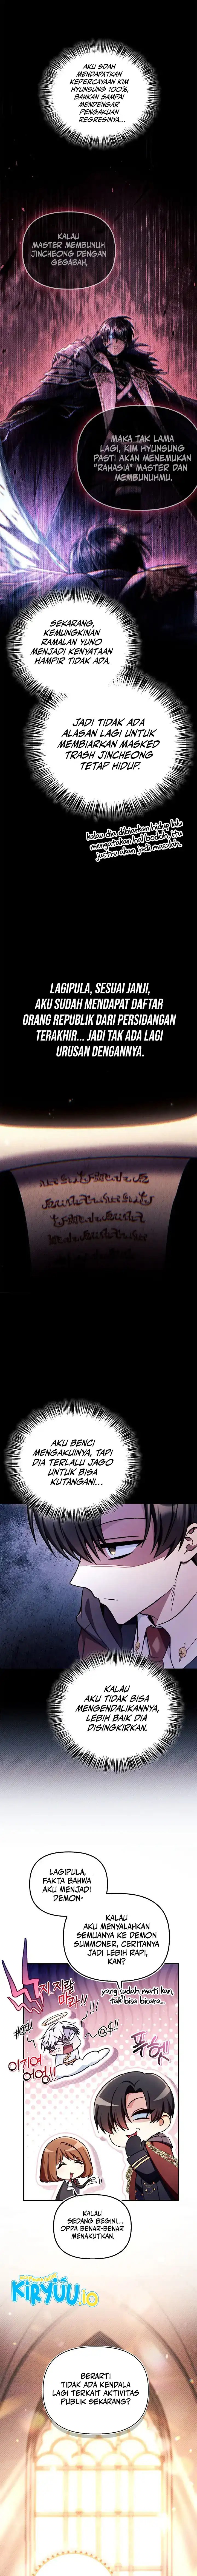 AKU SDAH
MENDAPATKAN
KEPERCAYAAN KIM
HYUNSUNG 100%,
BAHKAN SAMPAI
MENDENGAR
PENGAKUAN
REGRESINYA...
KALAU
MASTER MEMBUNUH
JINCHEONG DENGAN
GEGABAH,
MAKA TAK LAMA
LAGI, KIM HYUNSUNG
PASTI AKAN MENEMUKAN
"RAHASIA" MASTER DAN
MEMBUNUHMU.
SEKARANG,
KEMUNGKINAN
RAMALAN YUNO
MENJADI KENYATAAN
HAMPIR TIDAK ADA.
JADI TIDAK ADA
ALASAN LAGI UNTUK
MEMBIARKAN MASKED
TRASH JINCHEONG
TETAP HIDUP.
kalau dia dibiarkan hidup lalu
mengatakan hal bodoh, itu
justru akan jadi masalah.
LAGIPULA, SESUAI JANJI,
AKU SUDAH MENDAPAT DAFTAR
ORANG REPUBLIK DARI PERSIDANGAN
TERAKHIR... JADI TAK ADA LAGI
URUSAN DENGANNYA.
AKU BENCI
MENGAKUINYA, TAPI
DIA TERLALU JAGO
UNTUK BISA
KUTANGANI...
KALAU
AKU TIDAK BISA
MENGENDALIKANNYA,
LEBIH BAIK DIA
DISINGKIRKAN.
LAGIPULA,
FAKTA BAHWA
AKU MENJADI
DEMON-
KALAU
AKU MENYALAHKAN
SEMUANYA KE DEMON
SUMMONER, CERITANYA
JADI LEBIH RAPI,
KAN?
yang sudah mati kan
tak bisa bicara...
#@$!
!!!
~@$!!
KALAU
SEDANG BEGINI...
OPPA BENAR-BENAR
MENAKUTKAN.
KIRYUU.iO
BERARTI
TIDAK ADA KENDALA
LAGI TERKAIT AKTIVITAS
PUBLIK SEKARANG?